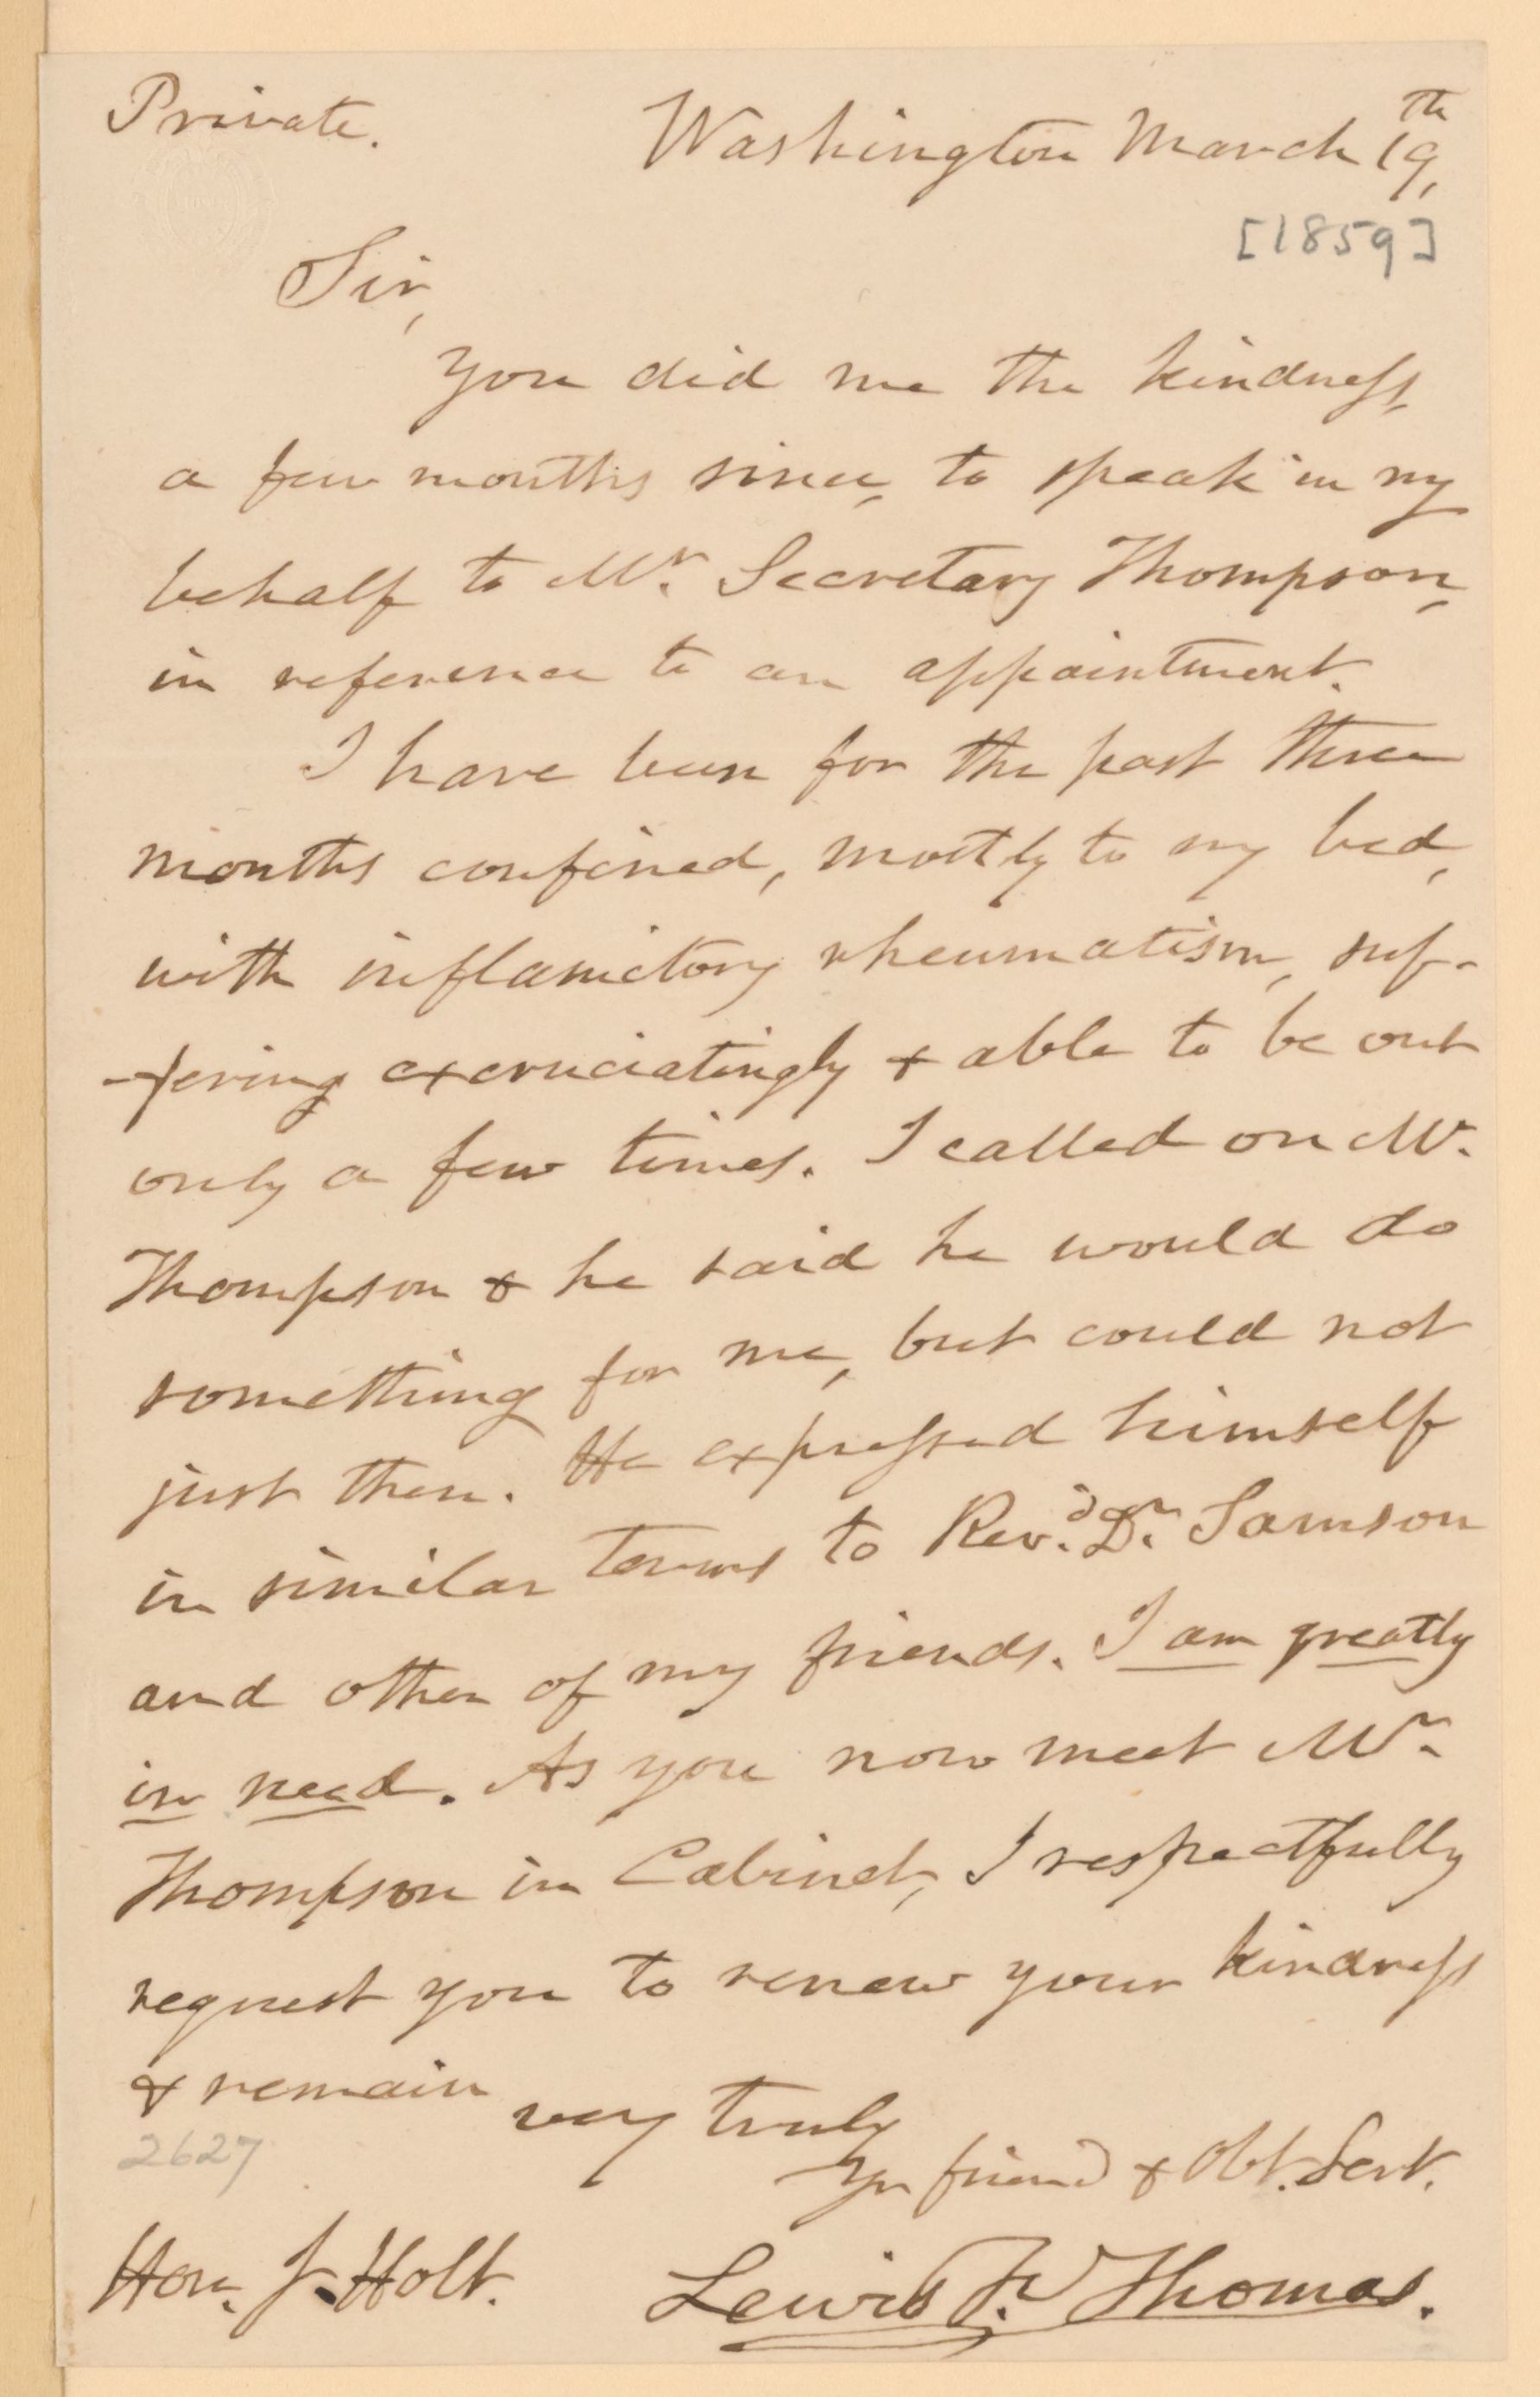 Private.
Washington March 19th,
[1859]
Sir,
You did me the kindness,
a few months since, to speak in my
behalf to Mr. Secretary Thompson,
in reference to an appointment.
I have been for the past three
months confined, mostly to my bed,
with inflamitory rheumatism, suf-
-fering excruciatingly & able to be out
only a few times. I called on Mr.
Thompson & he said he would do
something for me, but could not
just then. He expressed himself
in similar terms to Revd. Dr. Samson
and other of my friends. I am greatly
in need. As you now meet Mr.
Thompson in Cabinet, I respectfully
request you to renew your kindness
& remain
very truly
Yr friend & Obt. Servt.
2627
Hon. J. Holt.
Lewis F. Thomas.